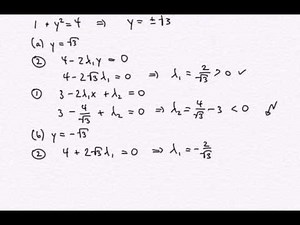 1 + y² = 4 ⇒ y = ±√3
(a) y = √3
② 4 - 2λ₁y = 0
4 - 2√3λ₁ = 0 ⇒ λ₁ = 2/√3 > 0 ✓
① 3 - 2λ₁x + λ₂ = 0
3 - 4/√3 + λ₂ = 0 ⇒ λ₂ = 4/√3 - 3 < 0
(b) y = -√3
② 4 + 2√3λ₁ = 0 ⇒ λ₁ = -2/√3